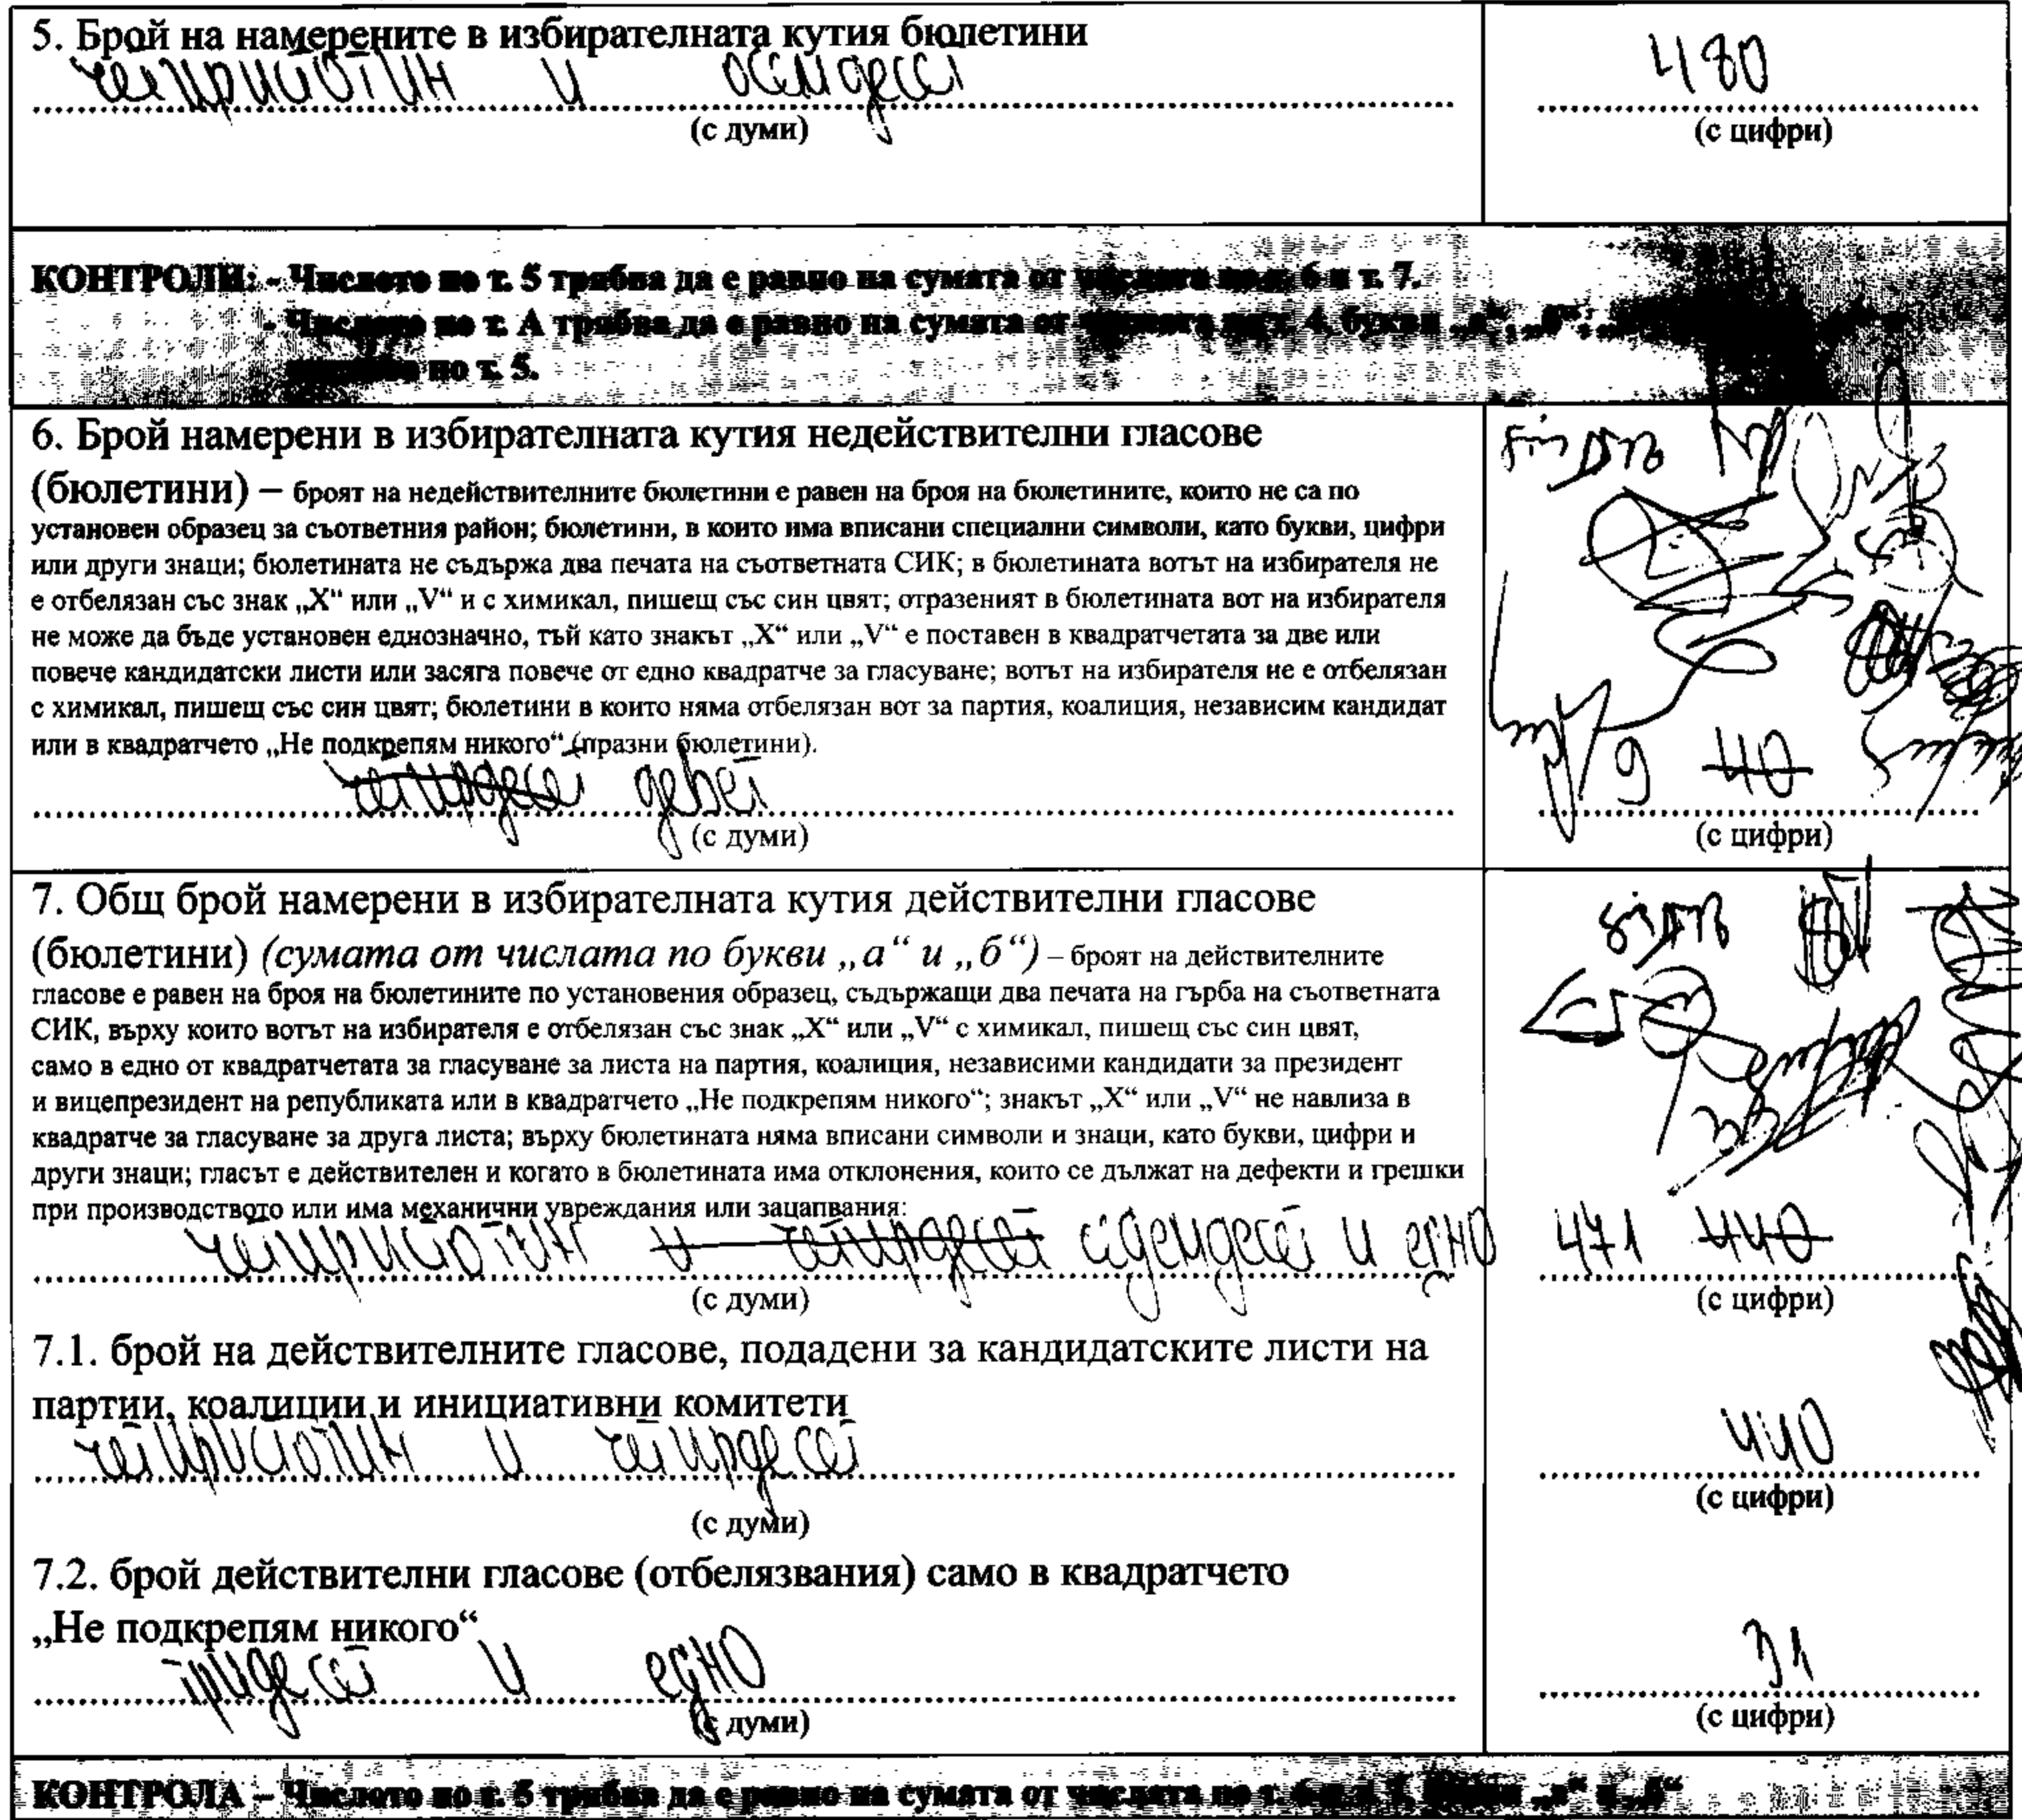 5. Брой на намерените в избирателната кутия бюлетини
четиристотин и осемдесет
480
(с думи)
(с цифри)
КОНТРОЛИ: - Числото по т. 5 трябва да е равно на сумата от числата по т. 6 и т. 7.
- Числото по т. А трябва да е равно на сумата от числата по т. 4, букви „а“,
по т. 5.
6. Брой намерени в избирателната кутия недействителни гласове
(бюлетини) – броят на недействителните бюлетини е равен на броя на бюлетините, които не са по
установен образец за съответния район; бюлетини, в които има вписани специални символи, като букви, цифри
или други знаци; бюлетината не съдържа два печата на съответната СИК; в бюлетината вотът на избирателя не
е отбелязан със знак „X“ или „V“ и с химикал, пишещ със син цвят; отразеният в бюлетината вот на избирателя
не може да бъде установен еднозначно, тъй като знакът „X“ или „V“ е поставен в квадратчетата за две или
повече кандидатски листи или засяга повече от едно квадратче за гласуване; вотът на избирателя не е отбелязан
с химикал, пишещ със син цвят; бюлетини в които няма отбелязан вот за партия, коалиция, независим кандидат
или в квадратчето „Не подкрепям никого“ (празни бюлетини).
четирдесет девет
9 40
(с думи)
(с цифри)
7. Общ брой намерени в избирателната кутия действителни гласове
(бюлетини) (сумата от числата по букви „а“ и „б“) – броят на действителните
гласове е равен на броя на бюлетините по установения образец, съдържащи два печата на гърба на съответната
СИК, върху които вотът на избирателя е отбелязан със знак „X“ или „V“ с химикал, пишещ със син цвят,
само в едно от квадратчетата за гласуване за листа на партия, коалиция, независими кандидати за президент
и вицепрезидент на републиката или в квадратчето „Не подкрепям никого“; знакът „X“ или „V“ не навлиза в
квадратче за гласуване за друга листа; върху бюлетината няма вписани символи и знаци, като букви, цифри и
други знаци; гласът е действителен и когато в бюлетината има отклонения, които се дължат на дефекти и грешки
при производството или има механични увреждания или зацапвания:
четиристотин и четирдесет седемдесет и едно
471 440
(с думи)
(с цифри)
7.1. брой на действителните гласове, подадени за кандидатските листи на
партии, коалиции и инициативни комитети
четиристотин и четирдесет
440
(с думи)
(с цифри)
7.2. брой действителни гласове (отбелязвания) само в квадратчето
„Не подкрепям никого“
тридесет и едно
31
(с думи)
(с цифри)
КОНТРОЛА – Числото по т. 5 трябва да е равно на сумата от числата по т. 6 и т. 7, букви „а“ и „б“